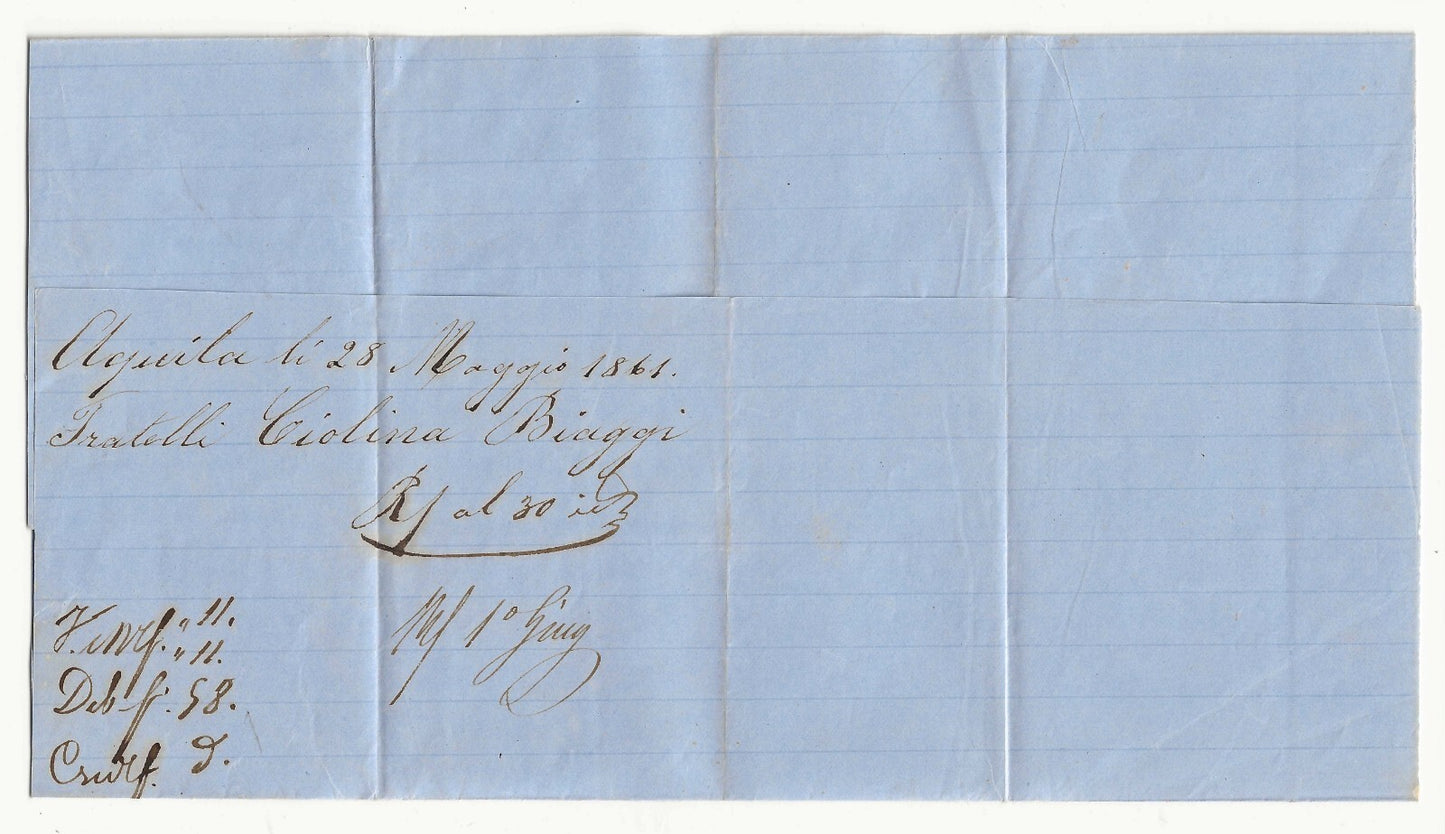 Aquila li 28 Maggio 1861.
Fratelli Ciolina Biaggi
R/ al 30 id
R/ 1º Giug
" 11.
" 11.
Deb f. 58.